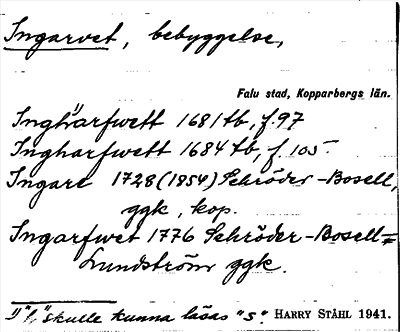 Ingarvet, bebyggelse,
Falu stad, Kopparbergs län.
Inghärfwett 1681 tb, f. 97
Ingharfwett 1684 tb, f. 105.
Ingare 1728 (1854) Schröder-Bosell,
ggk, kop.
Ingarfwet 1776 Schröder-Bosell=
Lundström ggk.
1) "h" skulle kunna läsas "s". HARRY STÅHL 1941.